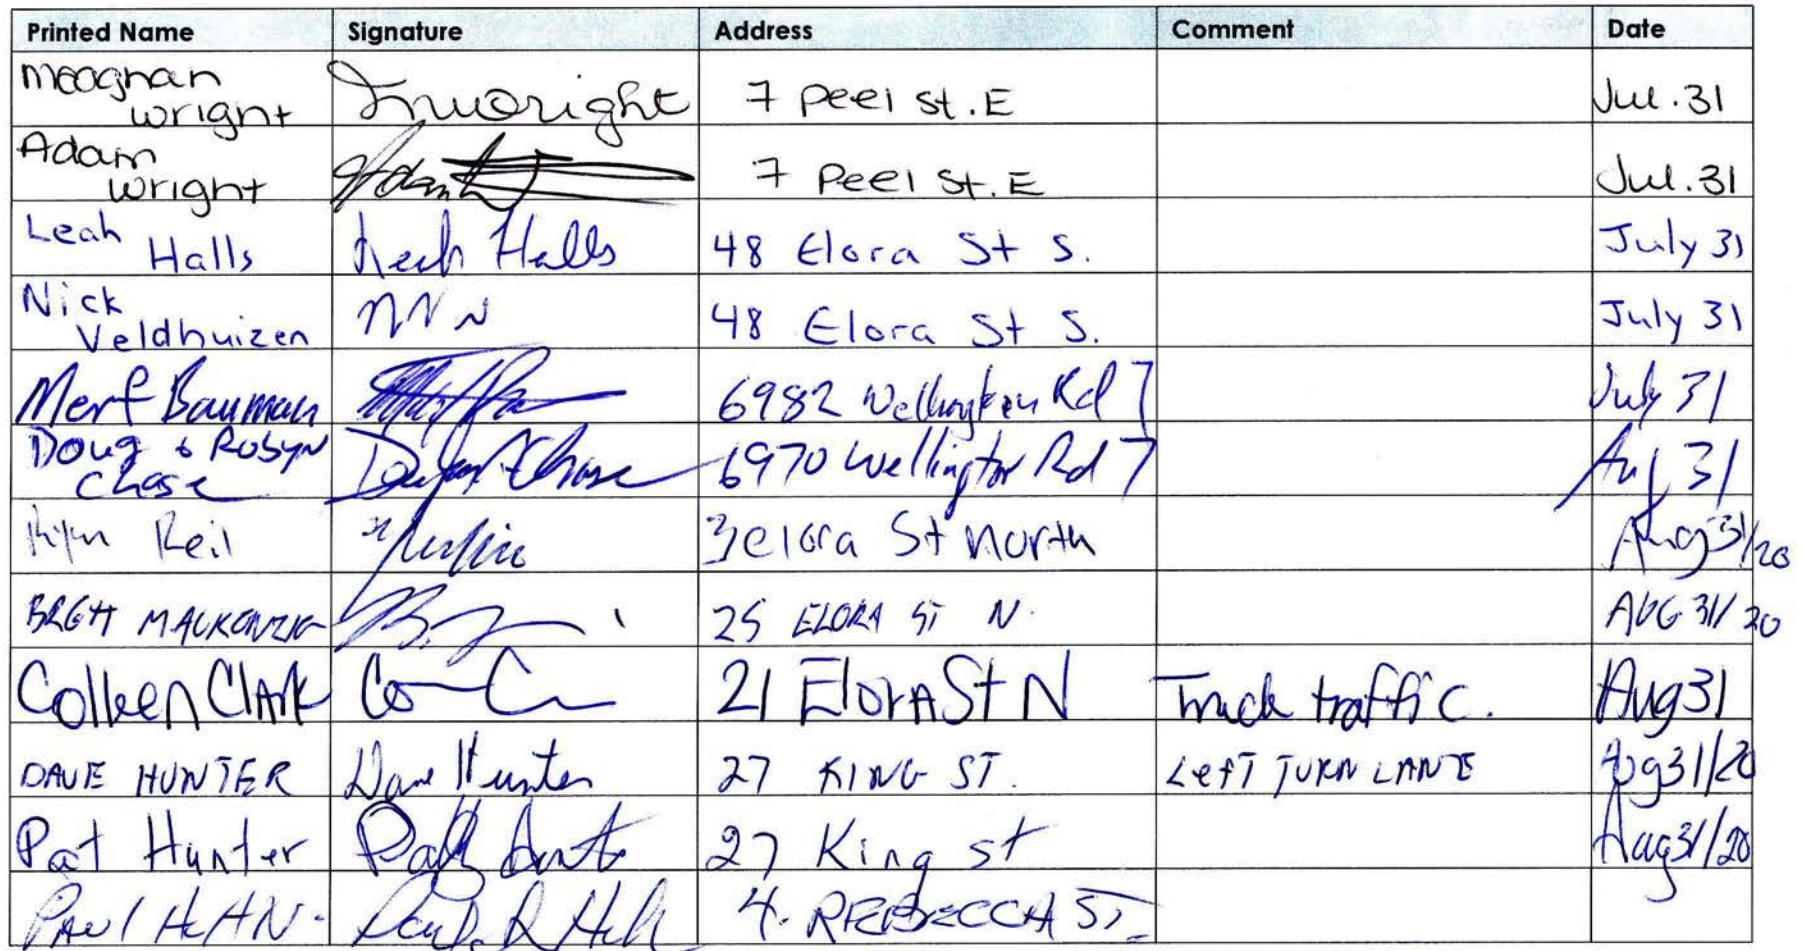 Printed Name Signature Address Comment Date
Meaghan
wright 7 Peel St. E Jul. 31
Adam
wright Adam 7 Peel St. E Jul. 31
Leah
Halls Leah Halls 48 Elora St S. July 31
Nick
Veldhuizen 48 Elora St S. July 31
Merf Bauman 6982 Wellington Rd 7 July 31
Doug & Robyn
Chase Chase 6970 Wellington Rd 7 Aug 31
Ryan Reil 3 elora St North Aug 31/20
BRETT MACKENZIE 25 ELORA ST N. AUG 31/20
Colleen Clark 21 Elora St N Truck traffic. Aug 31
DAVE HUNTER Dave Hunter 27 KING ST. LEFT TURN LANE Aug 31/20
Pat Hunter 27 King St Aug 31/20
PAUL HAHN. 4. REBECCA ST.